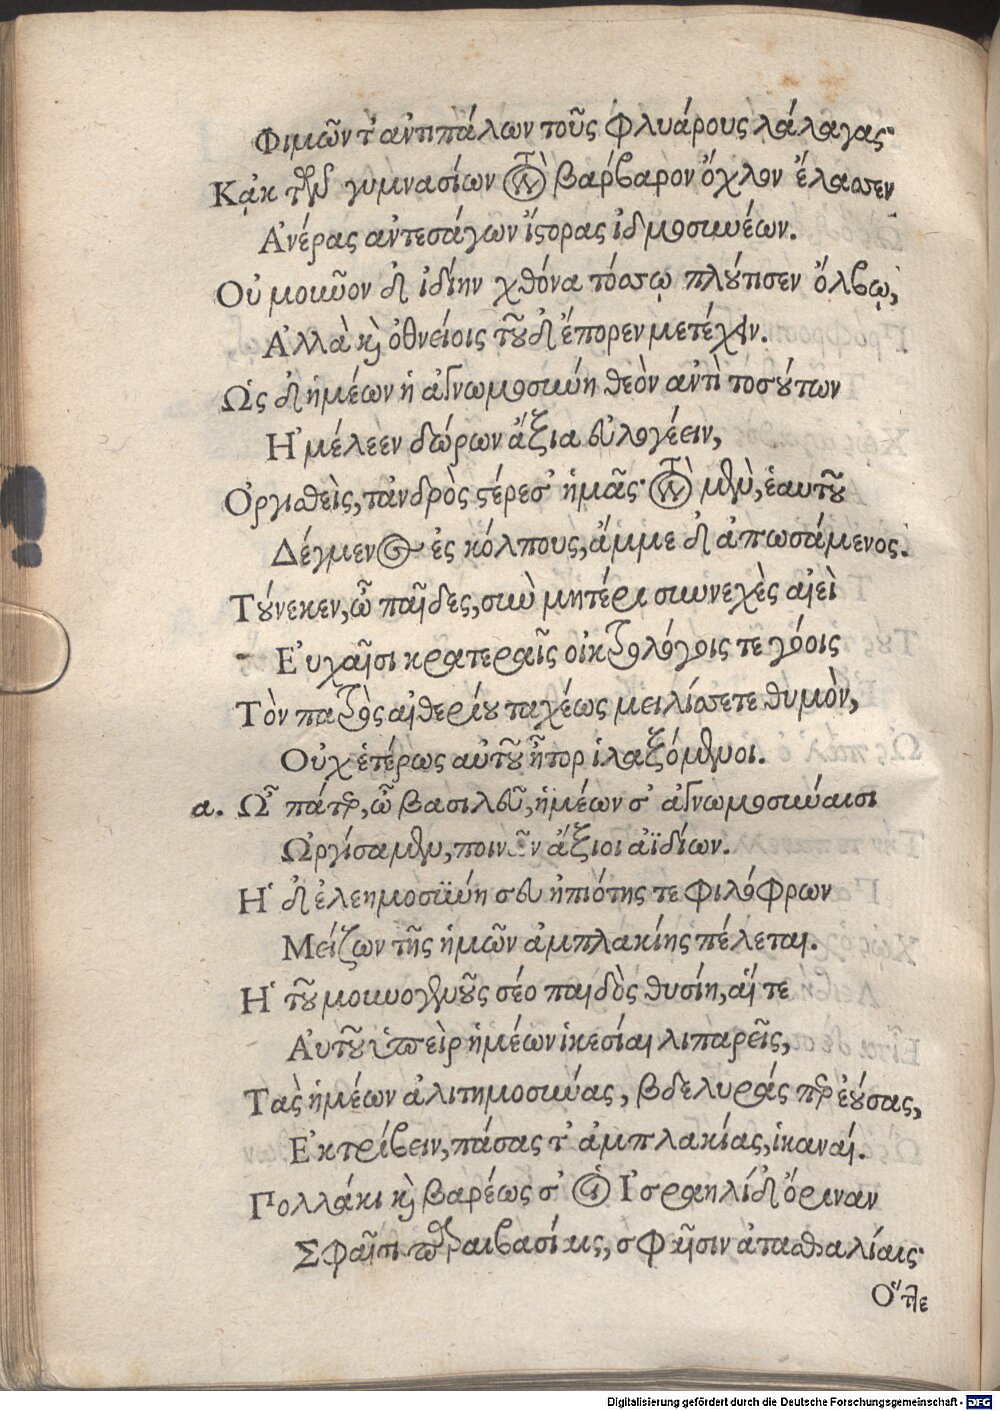 Φιμῶν τ' ἀντιπάλων τοῦς φλυάρους λάλαγας·
Κᾀκ τῶν γυμνασίων τὼ βάρβαρον ὄχλον ἔλασσεν
Ἀνέρας ἀντεσάγων ἵστορας ἰδμοσυνέων.
Οὐ μοῦνον δ' ἰδίην χθόνα τόσσῳ πλούτισεν ὄλβῳ,
Ἀλλὰ καὶ ὀθνείοις τοῦδ' ἔπορεν μετέχειν.
Ὡς δ' ἡμέων ἡ ἀγνωμοσύνη θεὸν ἀντὶ τοσούτων
Ἠμέλεεν δώρων ἄξια εὐλογέειν,
Ὀργισθεὶς, τἀνδρὸς στέρεσ' ἡμᾶς· τὼ μὲν, ἑαυτοῦ
Δέγμενος ἐς κόλπους, ἄμμε δ' ἀπωσάμενος.
Τούνεκεν, ὦ παῖδες, σὺν μητέρι συνεχὲς αἰεὶ
Εὐχαῖσι κρατεραῖς οἰκτρολόγοις τε γόοις
Τὸν πατρὸς αἰθερίου ταχέως μειλίσσετε θυμὸν,
Οὐχ ἑτέρως αὐτοῦ ἦτορ ἱλαζόμενοι.
α. Ὦ πάτερ, ὦ βασιλεῦ, ἡμέων σ' ἀγνωμοσύναισι
Ὠργίσαμεν, ποινῶν ἄξιοι ἀϊδίων.
Ἡ δ' ἐλεημοσύνη σευ ἠπιότης τε φιλόφρων
Μείζων τῆς ἡμῶν ἀμπλακίης πέλεται.
Ἡ τοῦ μουνογενοῦς σέο παιδὸς θυσίη, αἵ τε
Αὐτοῦ ὑπεὶρ ἡμέων ἱκεσίαι λιπαρεῖς,
Τὰς ἡμέων ἀλιτημοσύνας, βδελυράς περ ἐούσας,
Ἐκτρίβειν, πάσας τ' ἀμπλακίας, ἱκαναί.
Πολλάκι καὶ βαρέως σ' οἱ Ἰσραηλίδ' ὄριναν
Σφαῖσι παραιβασίαις, σφῇσιν ἀτασθαλίαις·
Οὕπερ